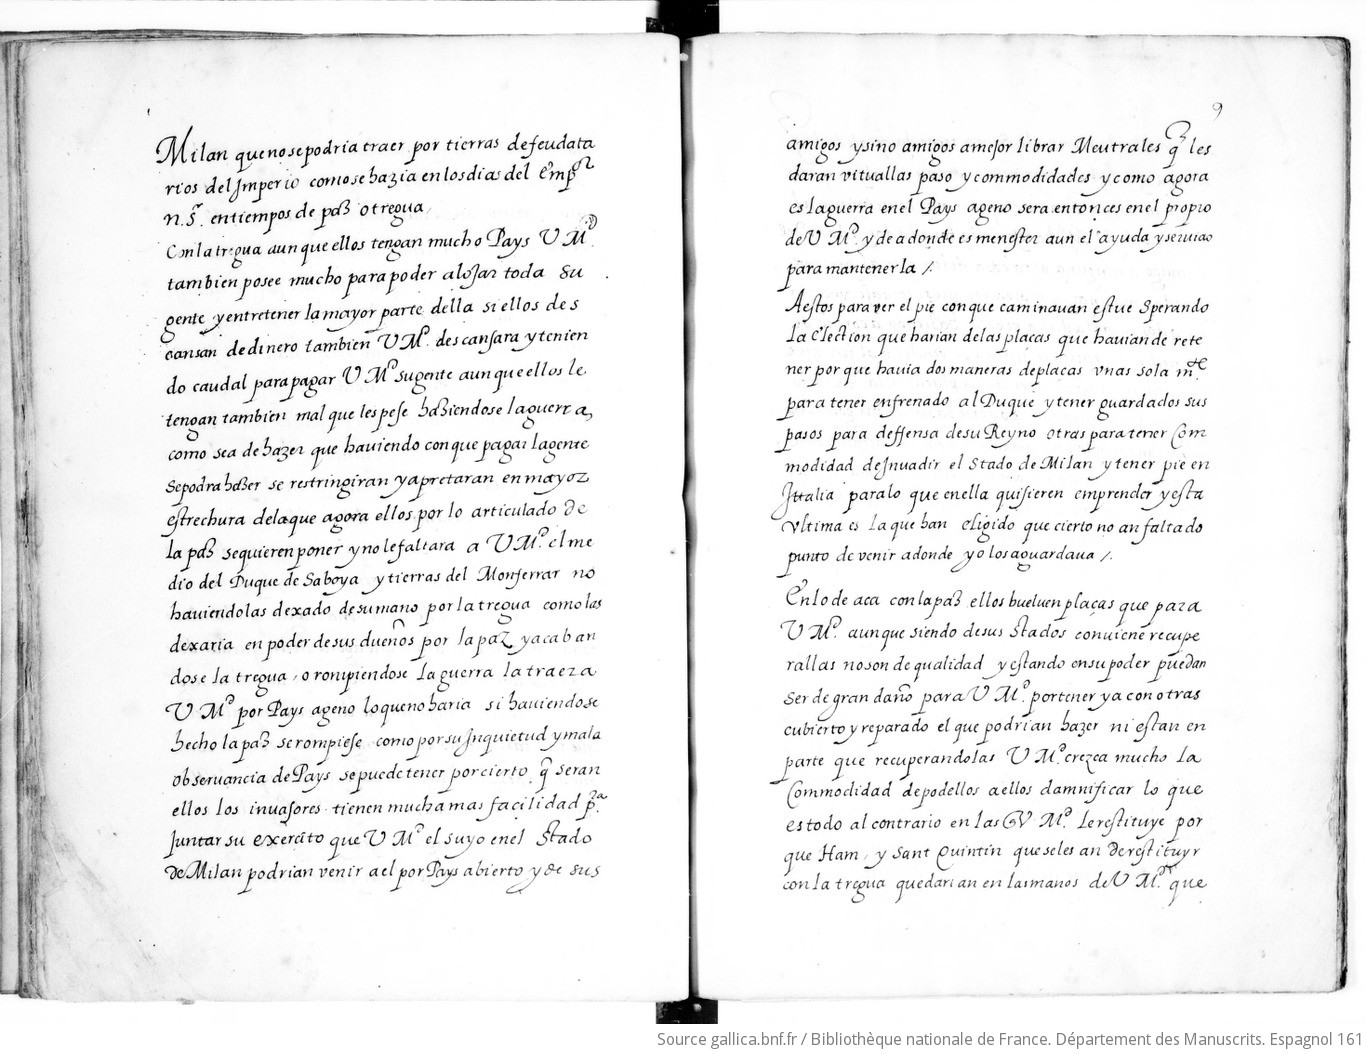 Milan que no se podria traer por tierras de feudata
rios del Jmperio como se hazia en los dias del Empor
n. Sr. en tiempos de paz o tregua,
Con la tregua aun que ellos tengan mucho Pays V Md.
tambien posee mucho para poder alojar toda su
gente y entretener la mayor parte della si ellos des
cansan de dinero tambien V Md. descansara y tenien
do caudal para pagar V Md su gente aun que ellos le
tengan tambien mal que les pese haziendose la guerra,
como sea de hazer que hauiendo con que pagar la gente
se podra hazer se restringiran y apretaran en mayor
estrechura de la que agora ellos por lo articulado de
la paz se quieren poner y no le faltara a V Md. el me
dio del Duque de Saboya y tierras del Monferrar no
hauiendolas dexado de su mano por la tregua como las
dexaria en poder de sus dueños por la paz y acaban
dose la tregua, o rompiendose la guerra la traera
V Md por Pays ageno lo que no haria si hauiendose
hecho la paz se rompiese como por su Jnquietud y mala
obseruancia de Pays se puede tener por cierto q̃ seran
ellos los inuasores tienen mucha mas facilidad pa.
Juntar su exercito que V Md el suyo en el Stado
de Milan podrian venir a el por Pays abierto y de sus
9
amigos y sino amigos a mejor librar Neutrales q̃ les
daran vituallas paso y commodidades y como agora
es la guerra en el Pays ageno sera entonces en el propio
de V Md. y de a donde es menester aun el ayuda y seruicio
para mantenerla /.
A estos para ver el pie con que caminauan estue Sperando
la Election que harian de las plaças que hauian de rete
ner por que hauia dos maneras de plaças vnas sola mte
para tener enfrenado al Duque y tener guardados sus
pasos para deffensa de su Reyno otras para tener Com
modidad de Jnuadir el Stado de Milan y tener pie en
Jttalia para lo que en ella quisieren emprender y esta
vltima es la que han eligido que cierto no an faltado
punto de venir a donde yo los aguardaua /.
En lo de aca con la paz ellos bueluen plaças que para
V Md. aunque siendo de sus Stados conuiene recupe
rallas no son de qualidad y estando en su poder puedan
ser de gran daño para V Md. por tener ya con otras
cubierto y reparado el que podrian hazer ni estan en
parte que recuperandolas V Md. crezca mucho la
Commodidad de podellos a ellos damnificar lo que
es todo al contrario en las q̃ V Md. le restituye por
que Ham, y Sant Quintin que se les an de restituyr
con la tregua quedarian en las manos de V Md. que